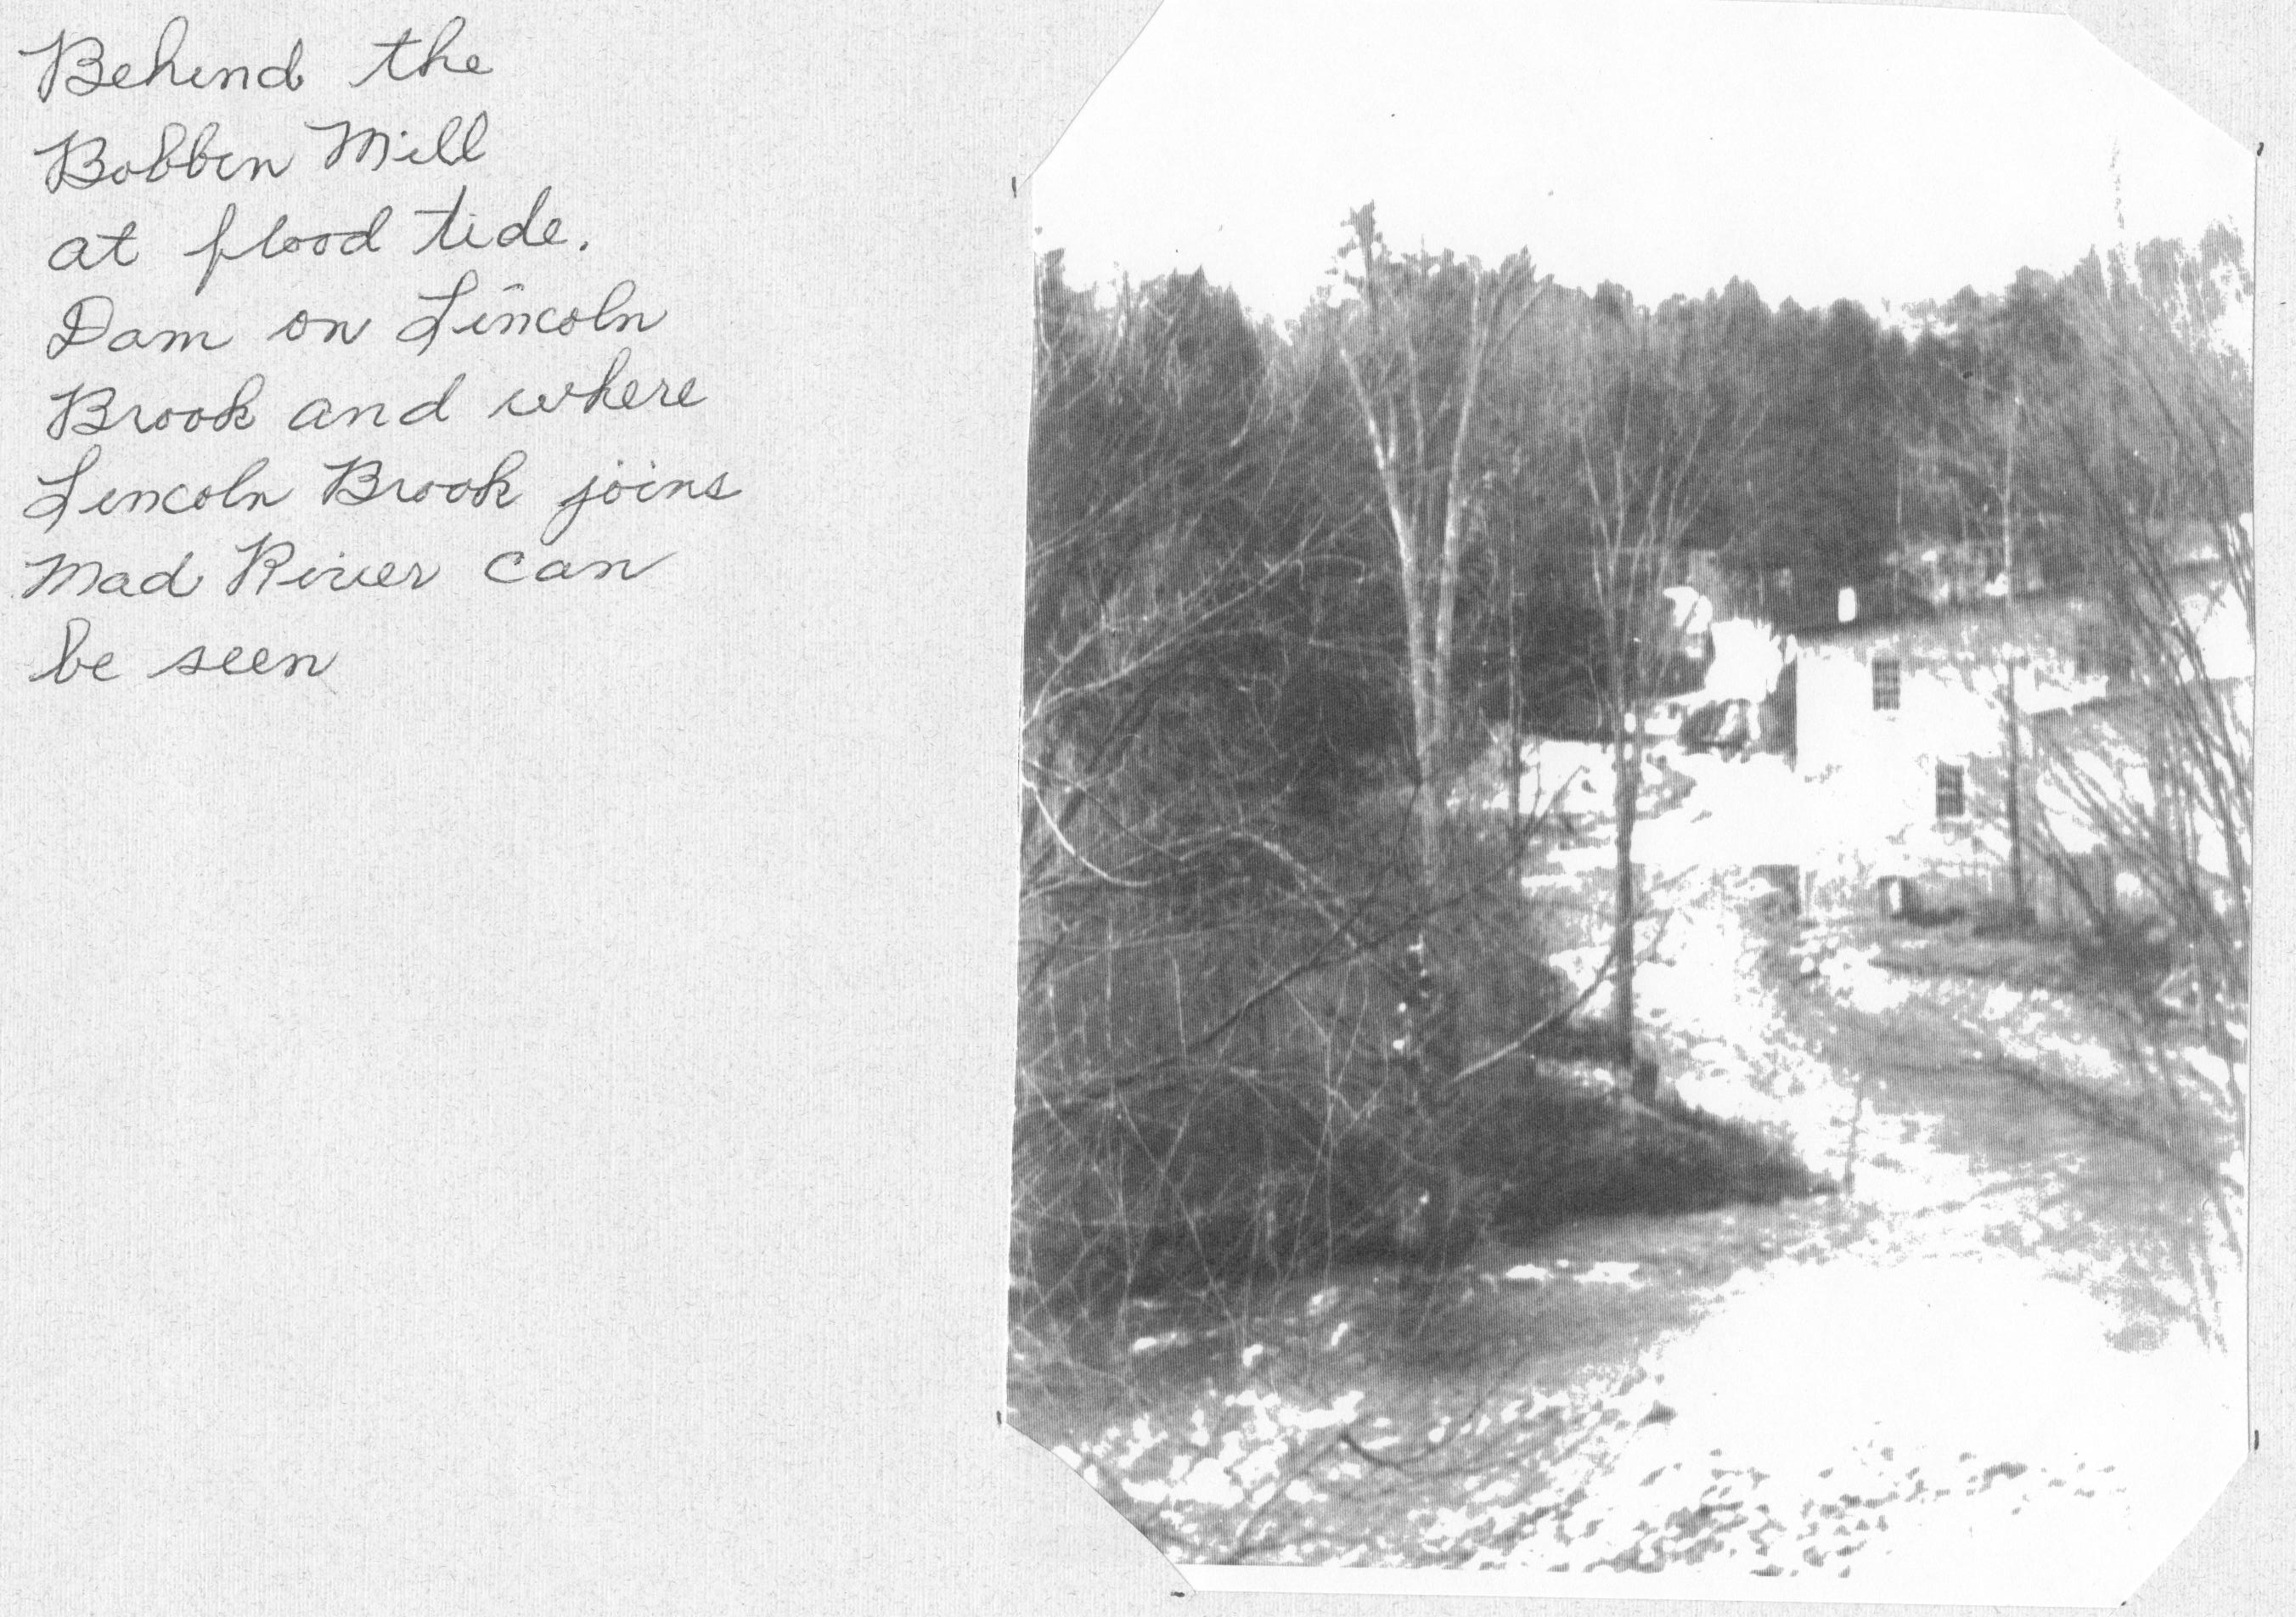 Behind the
Bobbin Mill
at flood tide.
Dam on Lincoln
Brook and where
Lincoln Brook joins
Mad River can
be seen